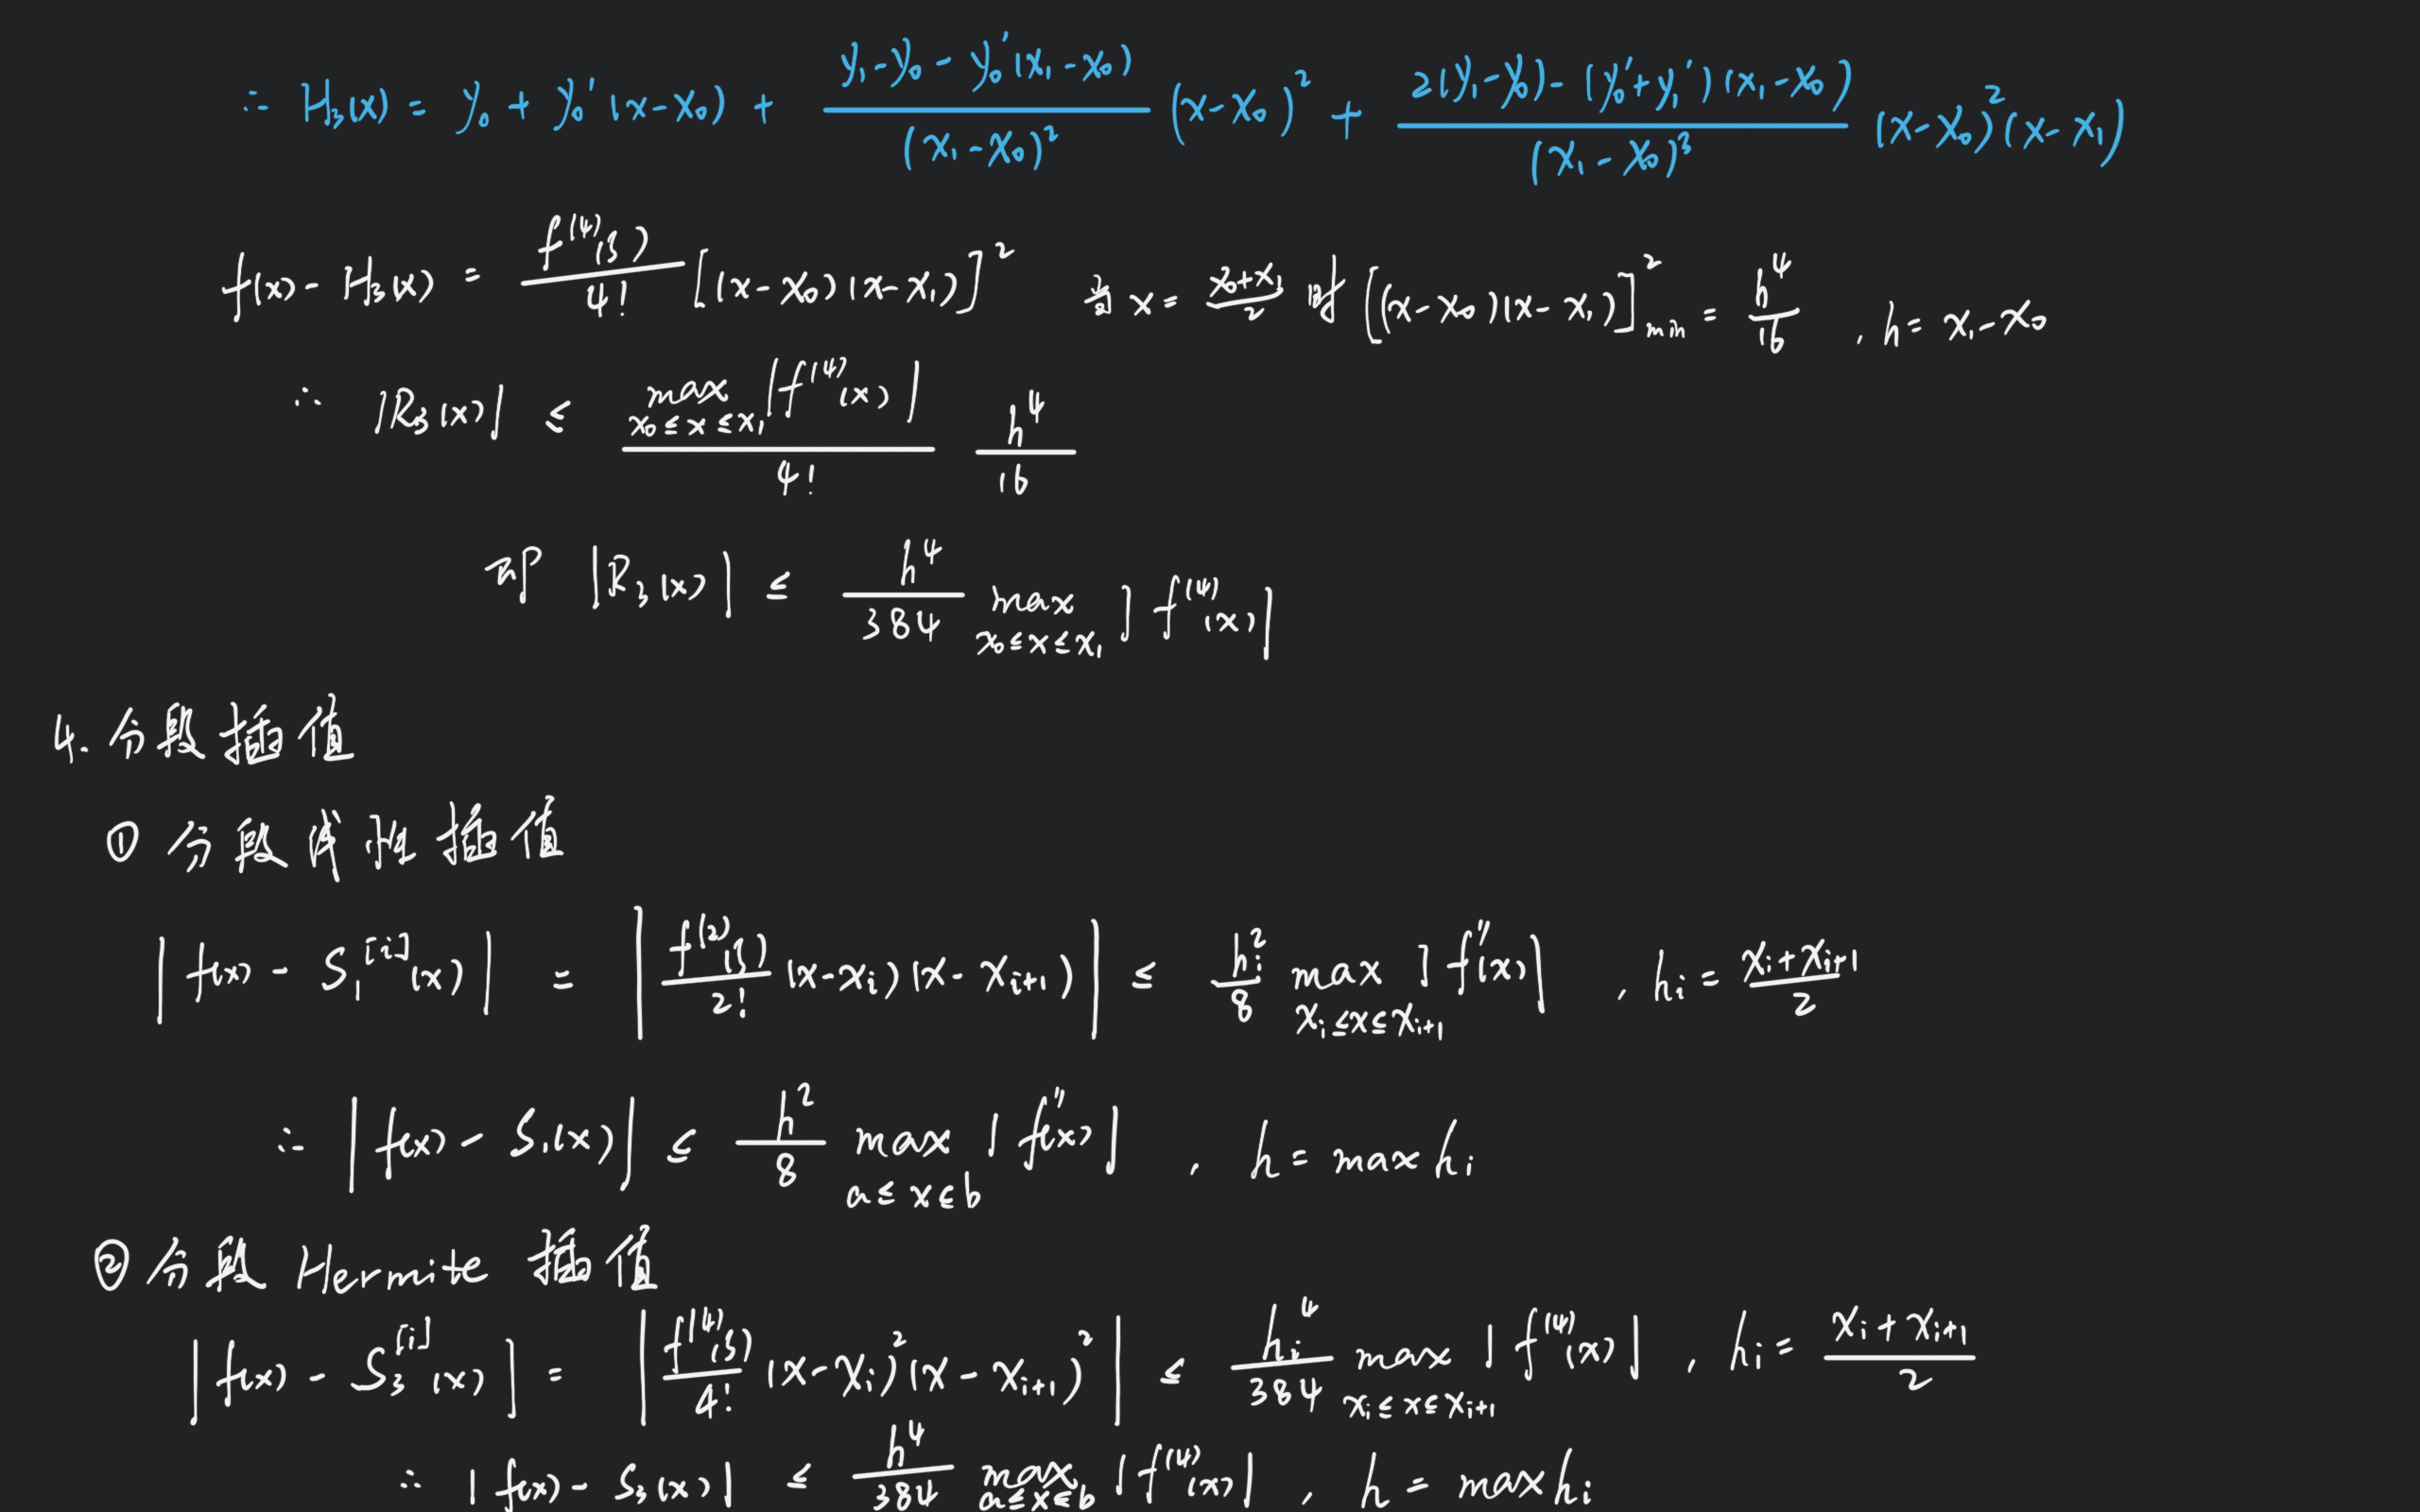 ∴ H₃(x) = y₀ + y₀'(x-x₀) + \frac{y₁-y₀-y₀'(x₁-x₀)}{(x₁-x₀)²} (x-x₀)² + \frac{2(y₁-y₀)-(y₀'+y₁')(x₁-x₀)}{(x₁-x₀)³} (x-x₀)²(x-x₁)
f(x) - H₃(x) = \frac{f⁽⁴⁾(ξ)}{4!} [(x-x₀)(x-x₁)]² 当 x = \frac{x₀+x₁}{2} 时 [(x-x₀)(x-x₁)]²_{min} = \frac{h⁴}{16} , h = x₁-x₀
∴ |R₃(x)| ≤ \frac{max_{x₀≤x≤x₁} |f⁽⁴⁾(x)|}{4!} \frac{h⁴}{16}
即 |R₃(x)| ≤ \frac{h⁴}{384} max_{x₀≤x≤x₁} |f⁽⁴⁾(x)|
4. 分段插值
① 分段线性插值
|f(x) - S₁^{[i]}(x)| = |\frac{f⁽²⁾(ξ)}{2!} (x-xᵢ)(x-xᵢ₊₁)| ≤ \frac{hᵢ²}{8} max_{xᵢ≤x≤xᵢ₊₁} |f''(x)| , hᵢ = \frac{xᵢ+xᵢ₊₁}{2}
∴ |f(x) - S₁(x)| ≤ \frac{h²}{8} max_{a≤x≤b} |f''(x)| , h = max hᵢ
② 分段 Hermite 插值
|f(x) - S₃^{[i]}(x)| = |\frac{f⁽⁴⁾(ξ)}{4!} (x-xᵢ)²(x-xᵢ₊₁)²| ≤ \frac{hᵢ⁴}{384} max_{xᵢ≤x≤xᵢ₊₁} |f⁽⁴⁾(x)| , hᵢ = \frac{xᵢ+xᵢ₊₁}{2}
∴ |f(x) - S₃(x)| ≤ \frac{h⁴}{384} max_{a≤x≤b} |f⁽⁴⁾(x)| , h = max hᵢ